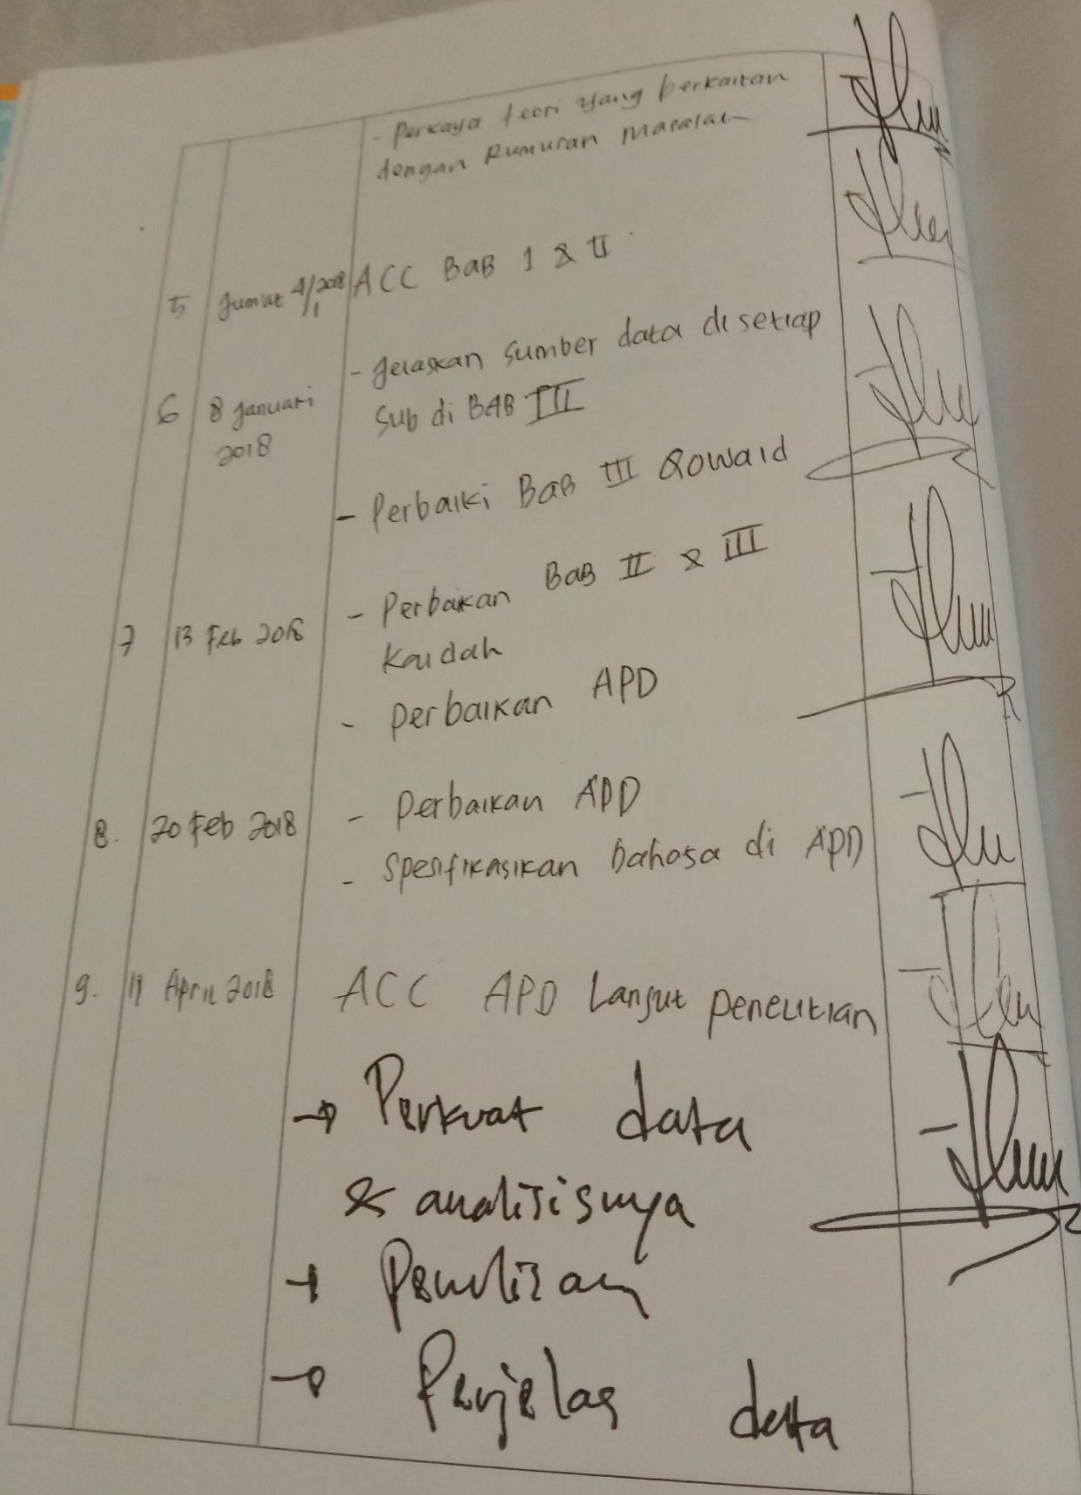 - Perkaya teori yang berkaitan
dengan Rumusan Masalah
5 Jumat 4/1 2018 ACC BaB 1 & II
- Jelaskan sumber data di setiap
6 8 Januari sub di BAB III
2018
- Perbaiki Bab III Qowaid
- Perbaikan BaB II & III
7 13 Feb 2018 Kaidah
- perbaikan APD
8. 20 Feb 2018 - Perbaikan APD
- Spesifikasikan bahasa di APD
9. 11 April 2018 ACC APD Lanjut penelitian
→ Perkuat data
& analisisnya
→ Penulisan
→ Perjelas data